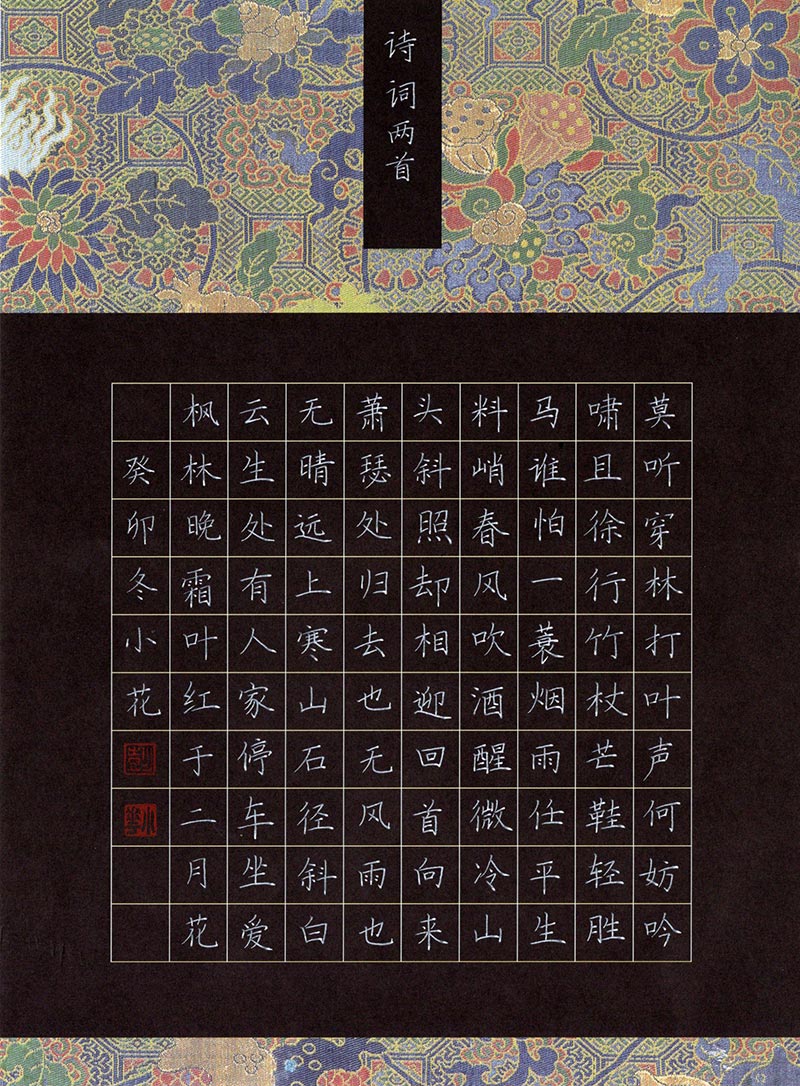 诗词两首
莫听穿林打叶声何妨吟
啸且徐行竹杖芒鞋轻胜
马谁怕一蓑烟雨任平生
料峭春风吹酒醒微冷山
头斜照却相迎回首向来
萧瑟处归去也无风雨也
无晴远上寒山石径斜白
云生处有人家停车坐爱
枫林晚霜叶红于二月花
癸卯冬小花